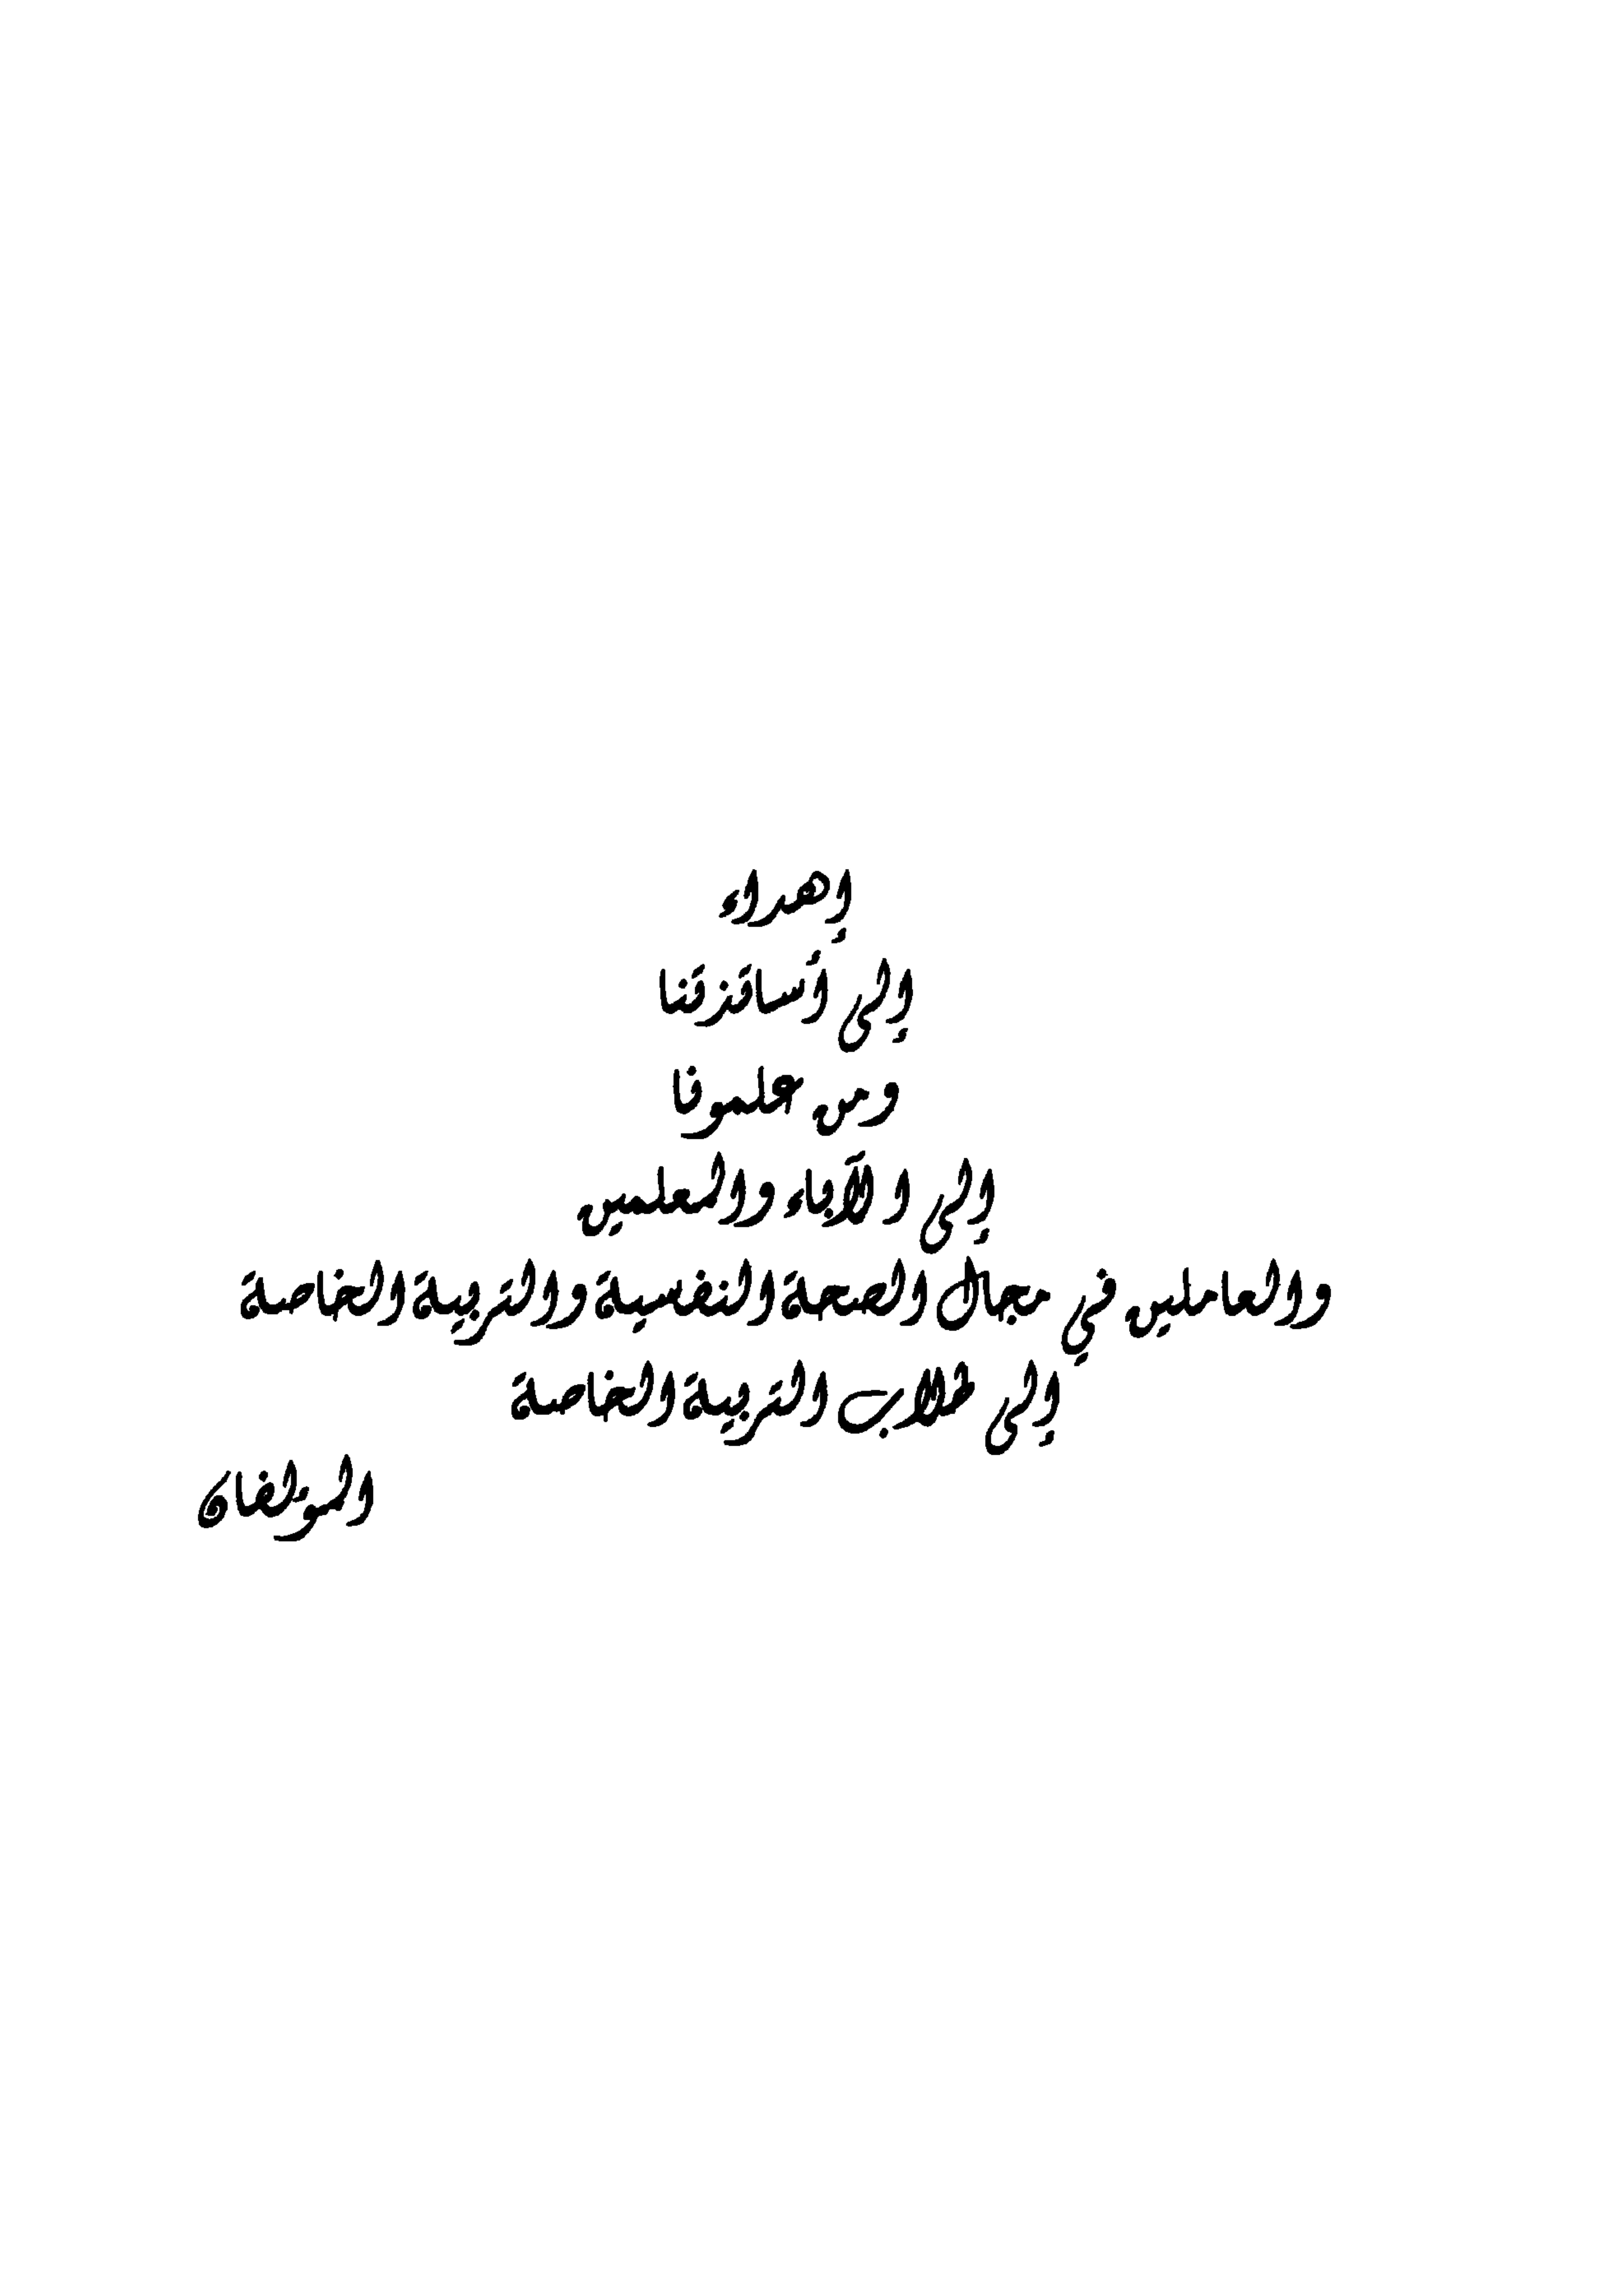 إهداء
إلى أساتذتنا
ومن علمونا
إلى الآباء والمعلمين
والعاملين في مجال الصحة النفسية والتربية الخاصة
إلى طلاب التربية الخاصة
المؤلفان